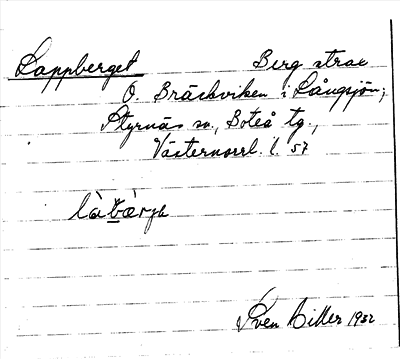 Lappberget Berg strax
O. Bräckviken i Långsjön,
Styrnäs sn., Boteå tg.,
Västernorrl. l. 57
Sven 1932